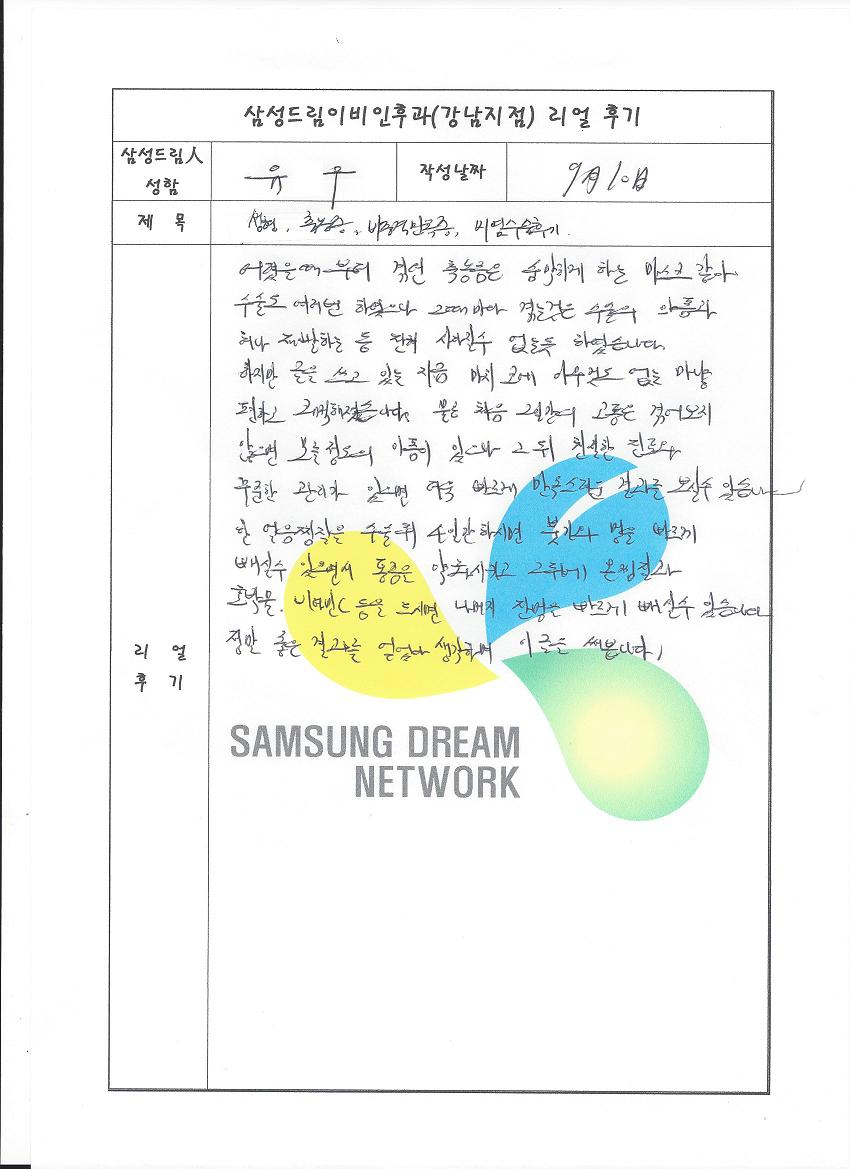 삼성드림이비인후과(강남지점) 리얼 후기
삼성드림人
성함
유 우
작성날짜
9月10日
제 목
성형, 축농증, 비중격만곡증, 비염수술후기.
어렸을때 부터 겪던 축농증은 숨막히게 하는 마스크 같아
수술도 여러번 하였으나 그때마다 겪는것은 수술의 아픔과
허나 재발하는 등 전혀 사라질수 없는듯 하였습니다.
하지만 글을 쓰고 있는 지금 마치 코에 아무것도 없는 마냥
편하고 쾌적해졌습니다. 물론 처음 그 고통은 겪어보지
않으면 모를정도의 아픔이 있으나 그 뒤 친절한 진료와
꾸준한 관리가 있으면 더욱 빠르게 만족스러운 결과를 보실수 있습니다
또 얼음찜질을 수술뒤 4일간하시면 붓기와 멍을 빠르게
빼실수 있으면서 통증은 약화시키고 그후에 온찜질과
호박물, 비타민C 등을 드시면 나머지 잔멍은 빠르게 빼실수 있습니다
정말 좋은 결과를 얻었다 생각하며 이글을 써봅니다,
리 얼
후 기
SAMSUNG DREAM
NETWORK